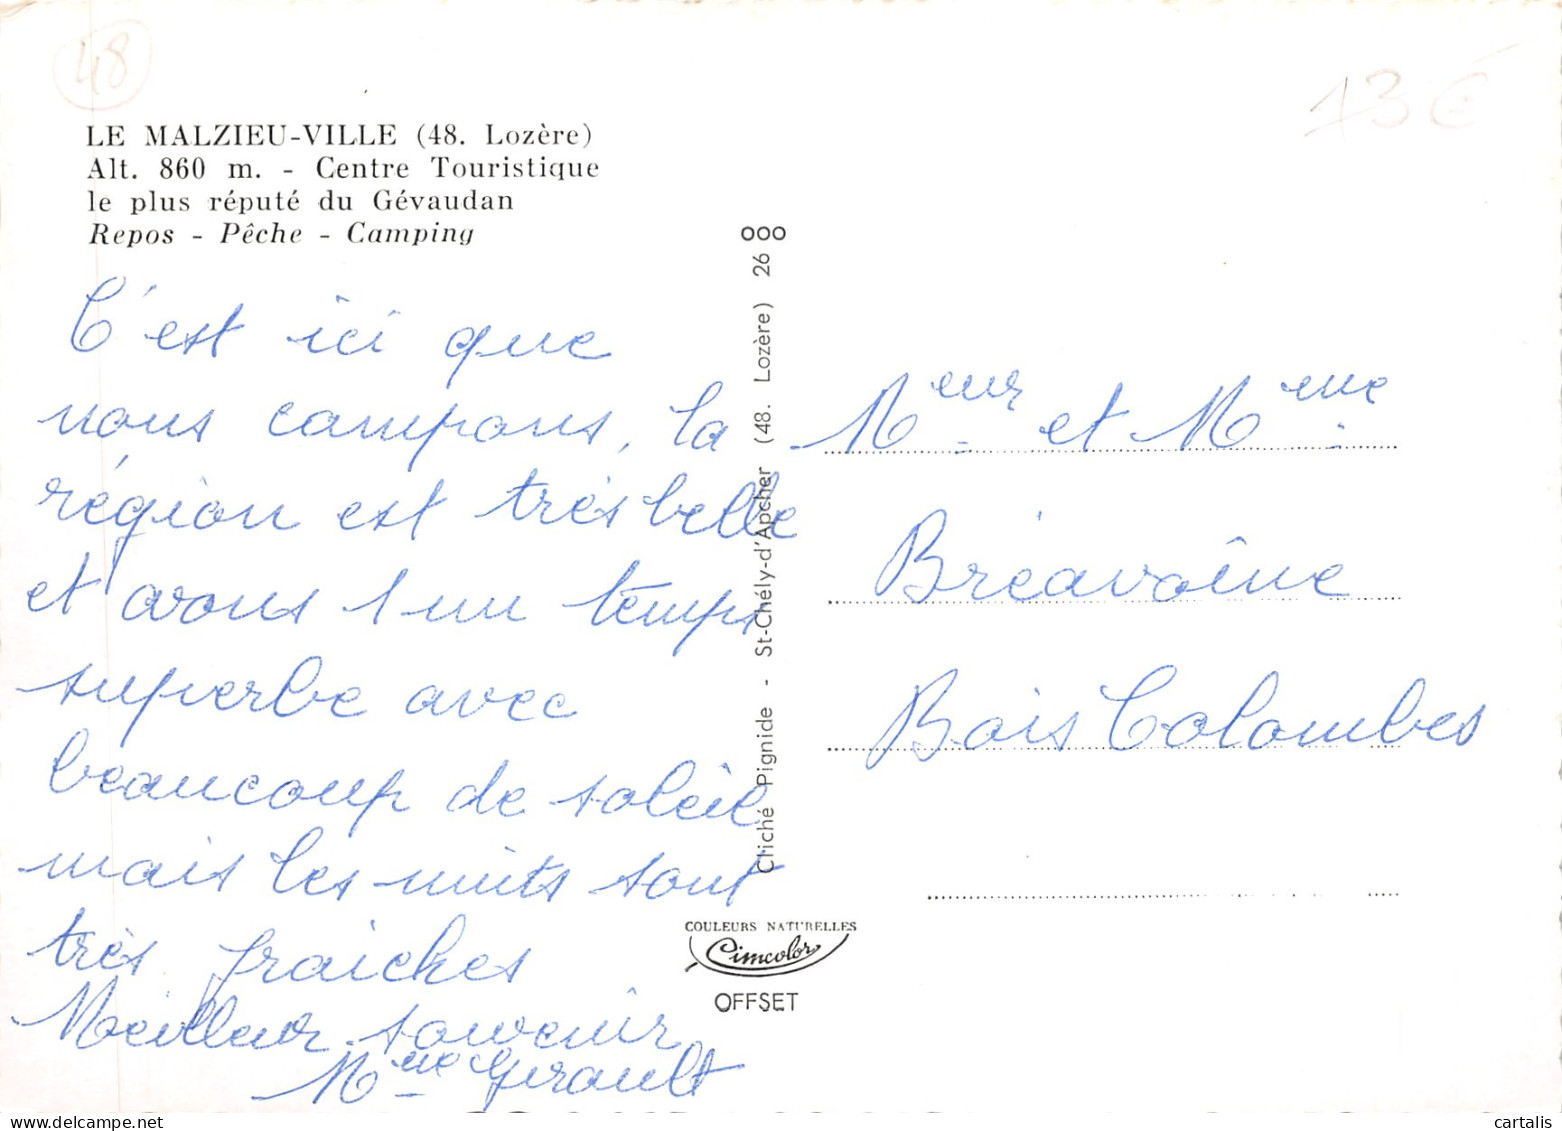 48
13€
LE MALZIEU-VILLE (48. Lozère)
Alt. 860 m. - Centre Touristique
le plus réputé du Gévaudan
Repos - Pêche - Camping
C'est ici que
nous campons, la
région est très belle
et avons 1 un temps
superbe avec
beaucoup de soleil
mais les nuits sont
très fraiches
Meilleur souvenir
Mme Gerault
Cliché Pignide - St-Chély-d'Apcher (48. Lozère) 26 000
COULEURS NATURELLES
Cimcolor
OFFSET
Meur et Mme
Bréavoîne
Bois Colombes
www.delcampe.net
cartalis